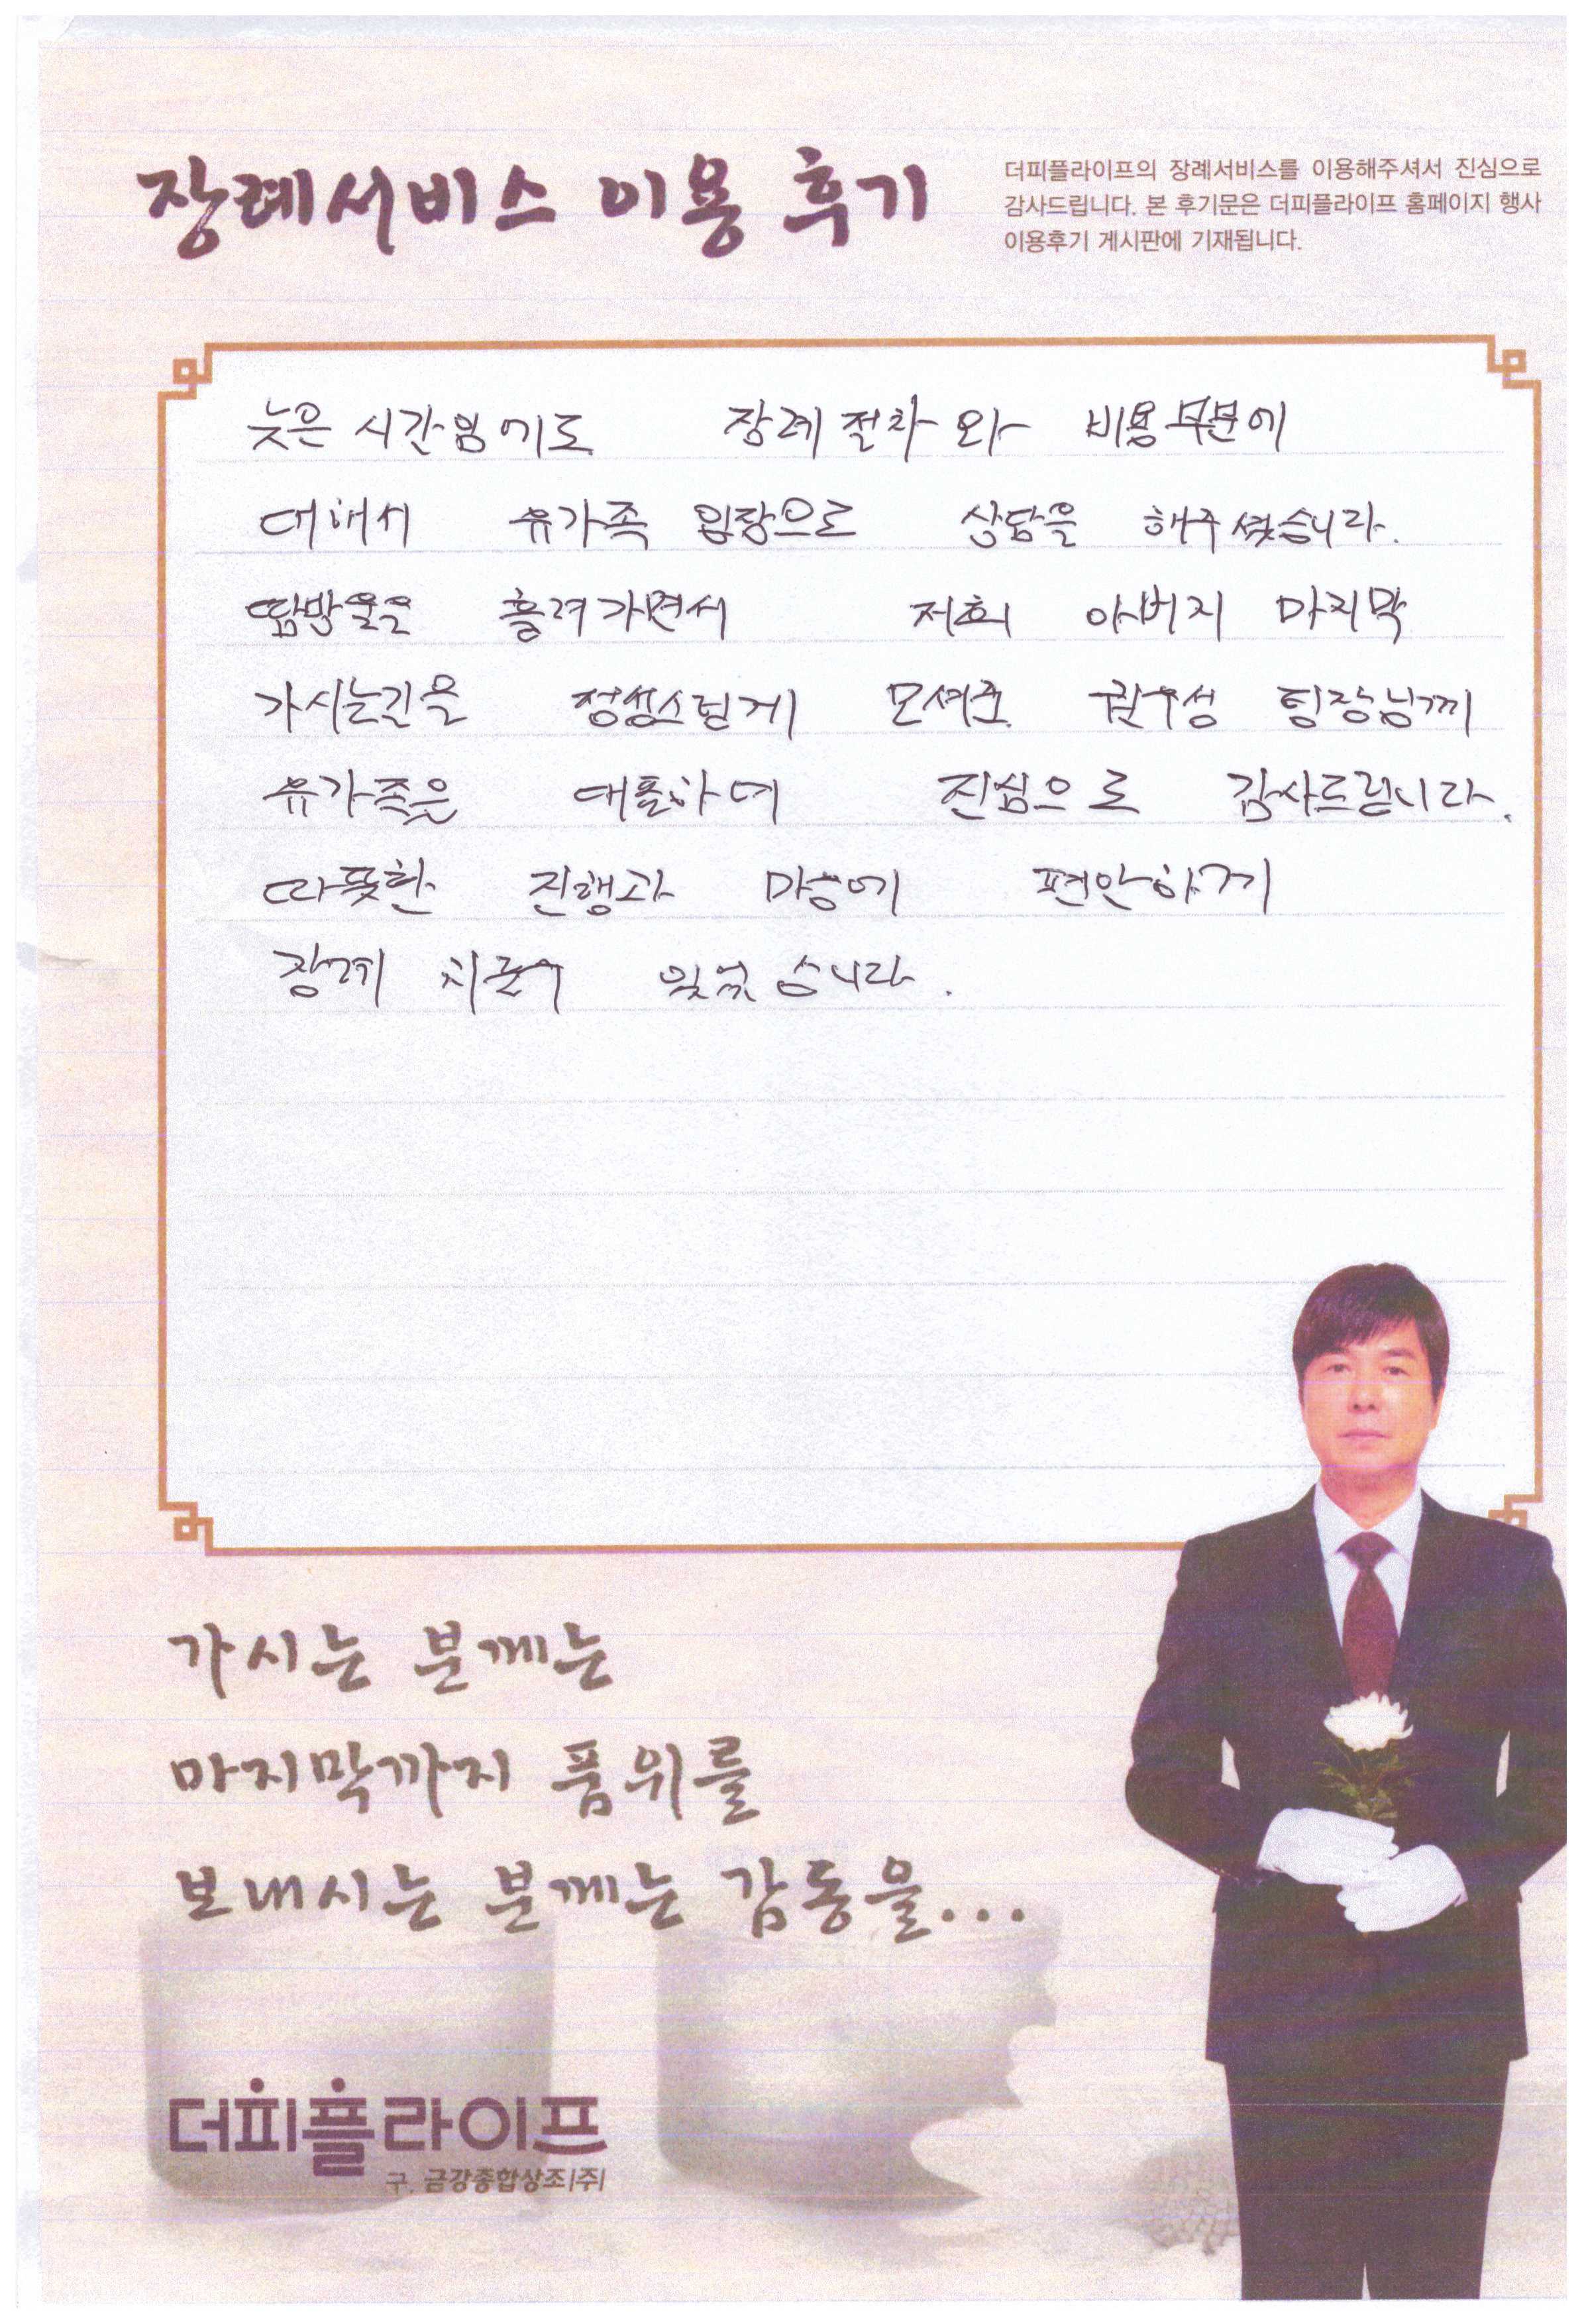 장례서비스 이용 후기
더피플라이프의 장례서비스를 이용해주셔서 진심으로
감사드립니다. 본 후기문은 더피플라이프 홈페이지 행사
이용후기 게시판에 기재됩니다.
늦은 시간임에도 장례 절차와 비용부분에
대해서 유가족 입장으로 상담을 해주셨습니다.
땀방울을 흘려가면서 저희 아버지 마지막
가시는길을 정성스럽게 모셔준 권우성 팀장님께
유가족은 대표하며 진심으로 감사드립니다.
따뜻한 진행과 마음에 편안하게
장례 치룰수 있었습니다.
가시는 분께는
마지막까지 품위를
보내시는 분께는 감동을...
더피플라이프
구. 금강종합상조(주)